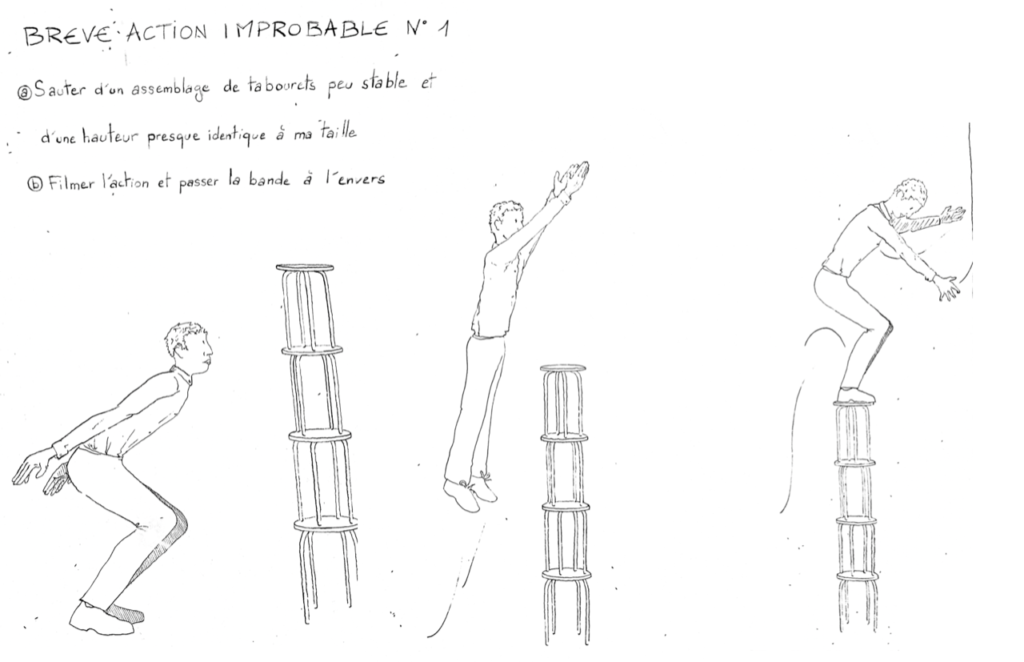 BREVE ACTION IMPROBABLE N° 1
ⓐ Sauter d'un assemblage de tabourets peu stable et
d'une hauteur presque identique à ma taille
ⓑ Filmer l'action et passer la bande à l'envers